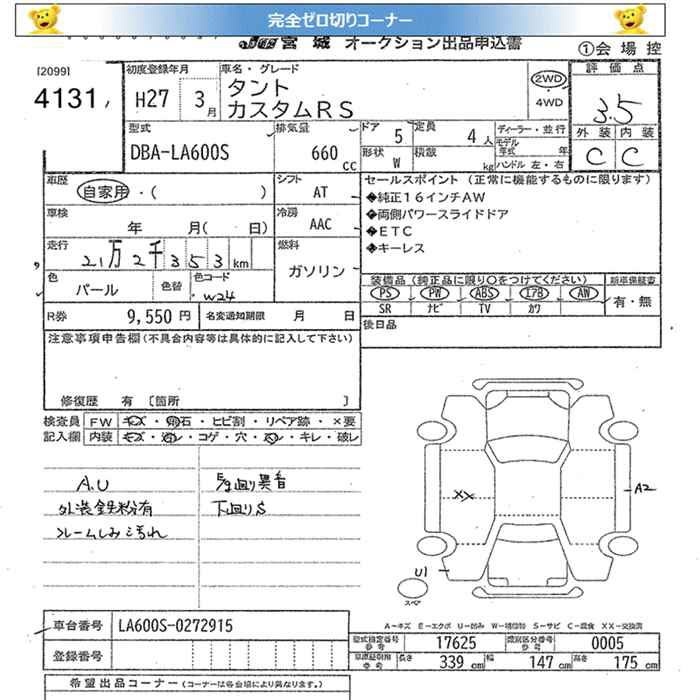 完全ゼロ切りコーナー
JU 宮城 オークション出品申込書
①会場控
[2099]
4131
初度登録年月
H27 3月
車名・グレード
タント
カスタムRS
2WD
・
4WD
評価点
3.5
外装 内装
C C
型式
DBA-LA600S
排気量
660 cc
ドア 5
定員 4人
ディーラー・並行
形状 W
積載 kg
モデル年式 年
ハンドル 左・右
車歴
自家用・( )
シフト
AT
セールスポイント (正常に機能するものに限ります)
◆純正16インチAW
◆両側パワースライドドア
◆ETC
◆キーレス
車検
年 月( 日)
冷房
AAC
走行
21万2千353km
燃料
ガソリン
色
パール
色替
色コード
W24
装備品 (純正品に限り○をつけてください)
新車保証書
PS PW ABS エアB AW
有・無
SR ナビ TV カワ
R券 9,550円
名変通知期限 月 日
後日品
注意事項申告欄(不具合内容等は具体的に記入して下さい)
修復歴 有 [箇所 ]
検査員 FW キズ・飛石・ヒビ割・リペア跡・×要
記入欄 内装 キズ・汚レ・コゲ・穴・スレ・キレ・破レ
A.U
外装鉄粉有
フレームしみ汚れ
足廻り異音
下廻りS
XX
A2
U1
スペア
A－キズ E－エクボ U－凹み W－補修物 S－サビ C－腐食 XX－交換済
車台番号 LA600S-0272915
登録番号
型式指定番号 参考 17625
類別区分番号 参考 0005
車庫証明用 参考 長さ 339 cm 幅 147 cm 高さ 175 cm
希望出品コーナー (コーナーは各会場により異なります。)